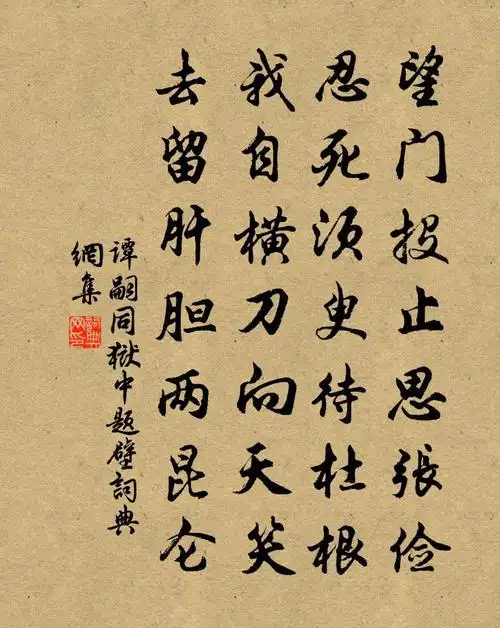 望门投止思張俭
忍死须臾待杜根
我自横刀向天笑
去留肝胆两昆仑
谭嗣同獄中題壁詞典
網集